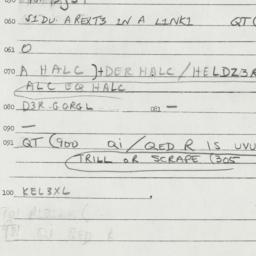 060 SIDU. AREXTS IN A LINK1 QT(
061 O
070 A HALC )+DER HALC/HELDZ3R
ALC EQ HALC
080 D3R.GORGL 081 —
090 —
091 QT (900 Qi/QED R IS UVU
TRILL OR SCRAPE (305
100 KEL3XL